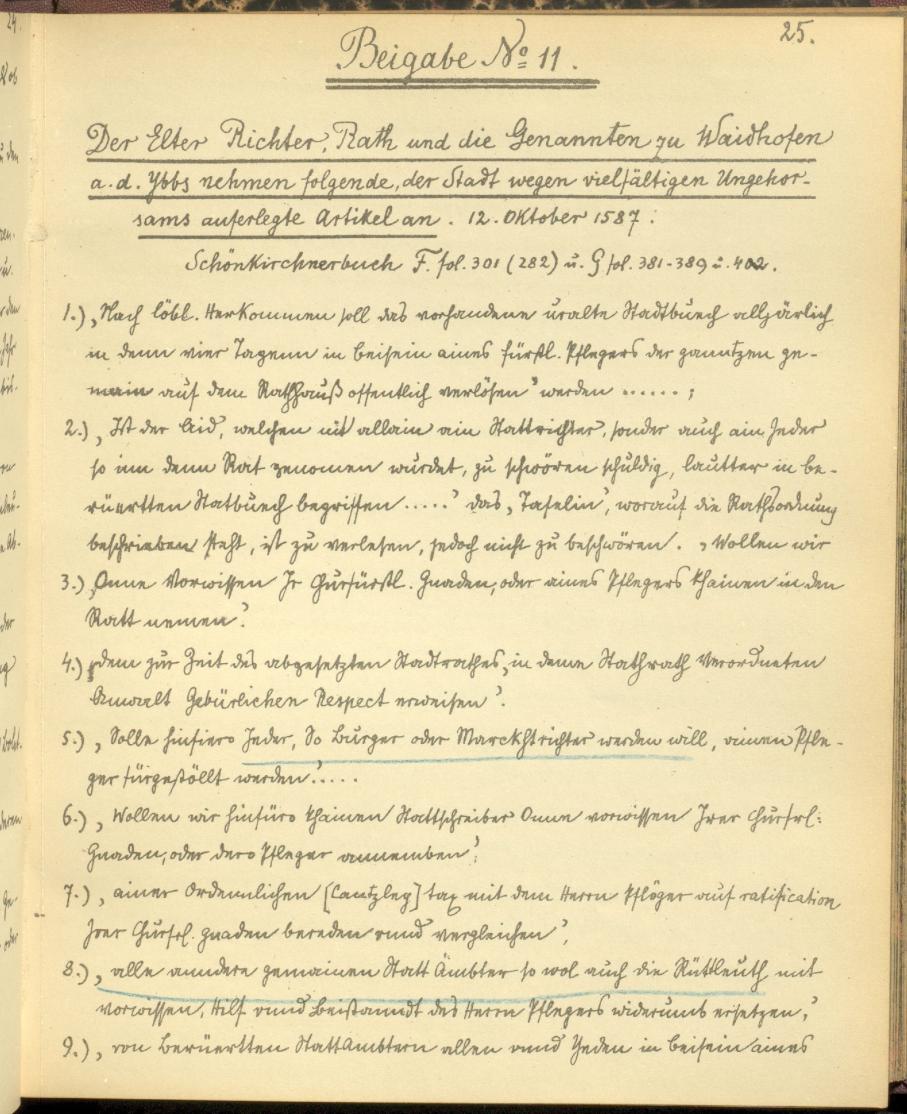 25.
Beigabe No 11.
Der Elter Richter, Rath und die Genannten zu Waidhofen
a. d. Ybbs nehmen folgende, der Stadt wegen vielfältigen Ungehor-
sams auferlegte Artikel an. 12. Oktober 1587.
Schönkirchnerbuch F. fol. 301 (282) u. G fol. 381-389 u. 402.
1.) „Nach löbl. Herkommen soll das vorhandene uralte Stadtbuech alljärlich
in denn vier Tagenn in beisein aines fürstl. Pflegers der ganntzen ge-
main auf dem Rathhauß offentlich verlösen" werden ......;
2.) „Ist der Aid, welchen nit allain ain Stattrichter, sonder auch ain Jeder
so inn denn Rat genomen wurdet, zu schwören schuldig, lautter in be-
rüertten Statbuech begriffen .....' das „Tafelin', worauf die Rathsordnung
beschrieben steht, ist zu verlesen, jedoch nicht zu beschwören. „Wollen wir
3.) Onne Vorwissen Jr Churfürstl. Gnaden, oder aines Pflegers khainen in den
Ratt nemen'.
4.) „dem zur Zeit des abgesetzten Stadtrathes, in denn Stathrath Verordneten
Anwalt Gebürlichen Respect erweisen'.
5.) „Solle hinfiero Jeder, So Burger oder Marckhtrichter werden will, ainen Pfle-
ger fürgestöllt werden'.....
6.) „Wollen wir hinfüro khainen Stattschreiber Onne vorwissen Jrer Churfrl:
Gnaden, oder dero Pfleger annemben';
7.) „ainer Ordennlichen [Cantzley] tax mit dem Herrn Pflöger auf ratification
Jrer Churfrl. gnaden bereden unnd vergleichen',
8.) „alle anndere gemainen Statt Ämbter so wol auch die Rüttleuth mit
vorwissen, Hilf unnd Beistanndt des Herrn Pflegers widerumb ersetzen,'
9.) „von Berüertten StattAmbtern allen unnd Yeden in beisein aines